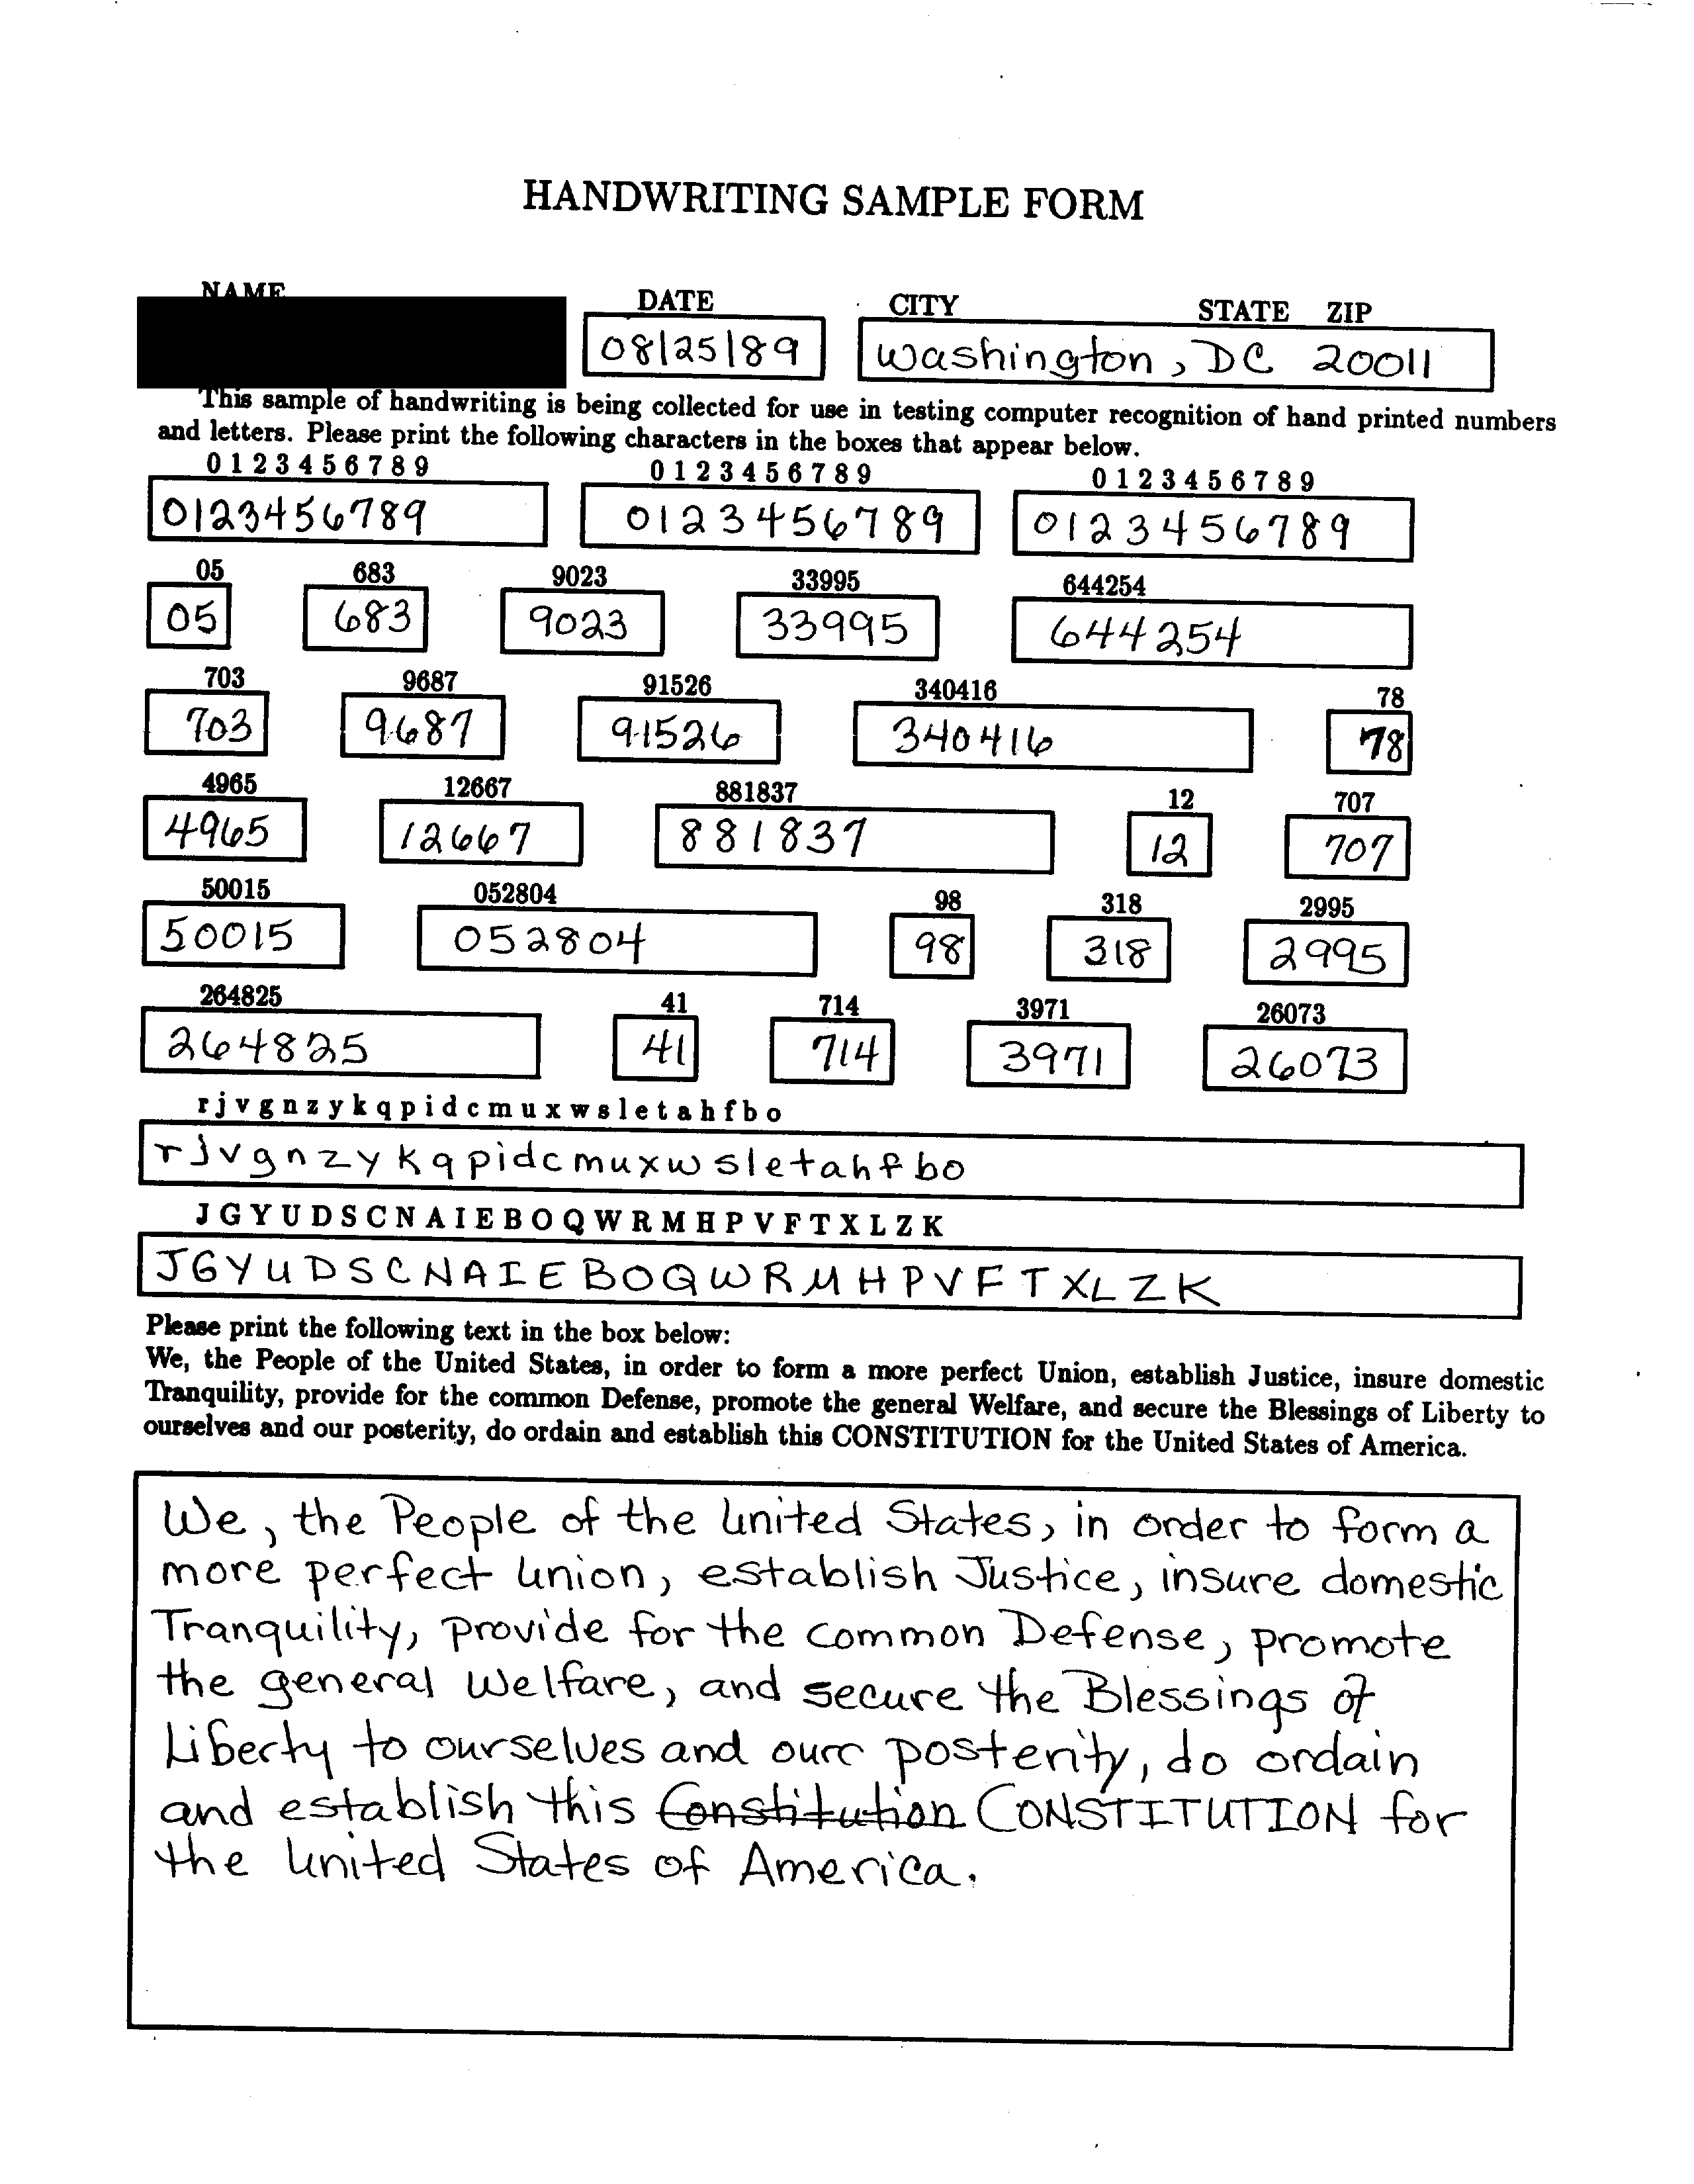 HANDWRITING SAMPLE FORM
NAME DATE CITY STATE ZIP
08/25/89 Washington, DC 20011
This sample of handwriting is being collected for use in testing computer recognition of hand printed numbers
and letters. Please print the following characters in the boxes that appear below.
0 1 2 3 4 5 6 7 8 9 0 1 2 3 4 5 6 7 8 9 0 1 2 3 4 5 6 7 8 9
0123456789 0123456789 0123456789
05 683 9023 33995 644254
05 683 9023 33995 644254
703 9687 91526 340416 78
703 9687 91526 340416 78
4965 12667 881837 12 707
4965 12667 881837 12 707
50015 052804 98 318 2995
50015 052804 98 318 2995
264825 41 714 3971 26073
264825 41 714 3971 26073
r j v g n z y k q p i d c m u x w s l e t a h f b o
rjvgnzykqpidcmuxwsletahfbo
J G Y U D S C N A I E B O Q W R M H P V F T X L Z K
JGYUDSCNAIEBOQWRMHPVFTXLZK
Please print the following text in the box below:
We, the People of the United States, in order to form a more perfect Union, establish Justice, insure domestic
Tranquility, provide for the common Defense, promote the general Welfare, and secure the Blessings of Liberty to
ourselves and our posterity, do ordain and establish this CONSTITUTION for the United States of America.
We, the People of the United States, in order to form a
more perfect Union, establish Justice, insure domestic
Tranquility, provide for the common Defense, promote
the general Welfare, and secure the Blessings of
Liberty to ourselves and our posterity, do ordain
and establish this Constitution CONSTITUTION for
the United States of America.